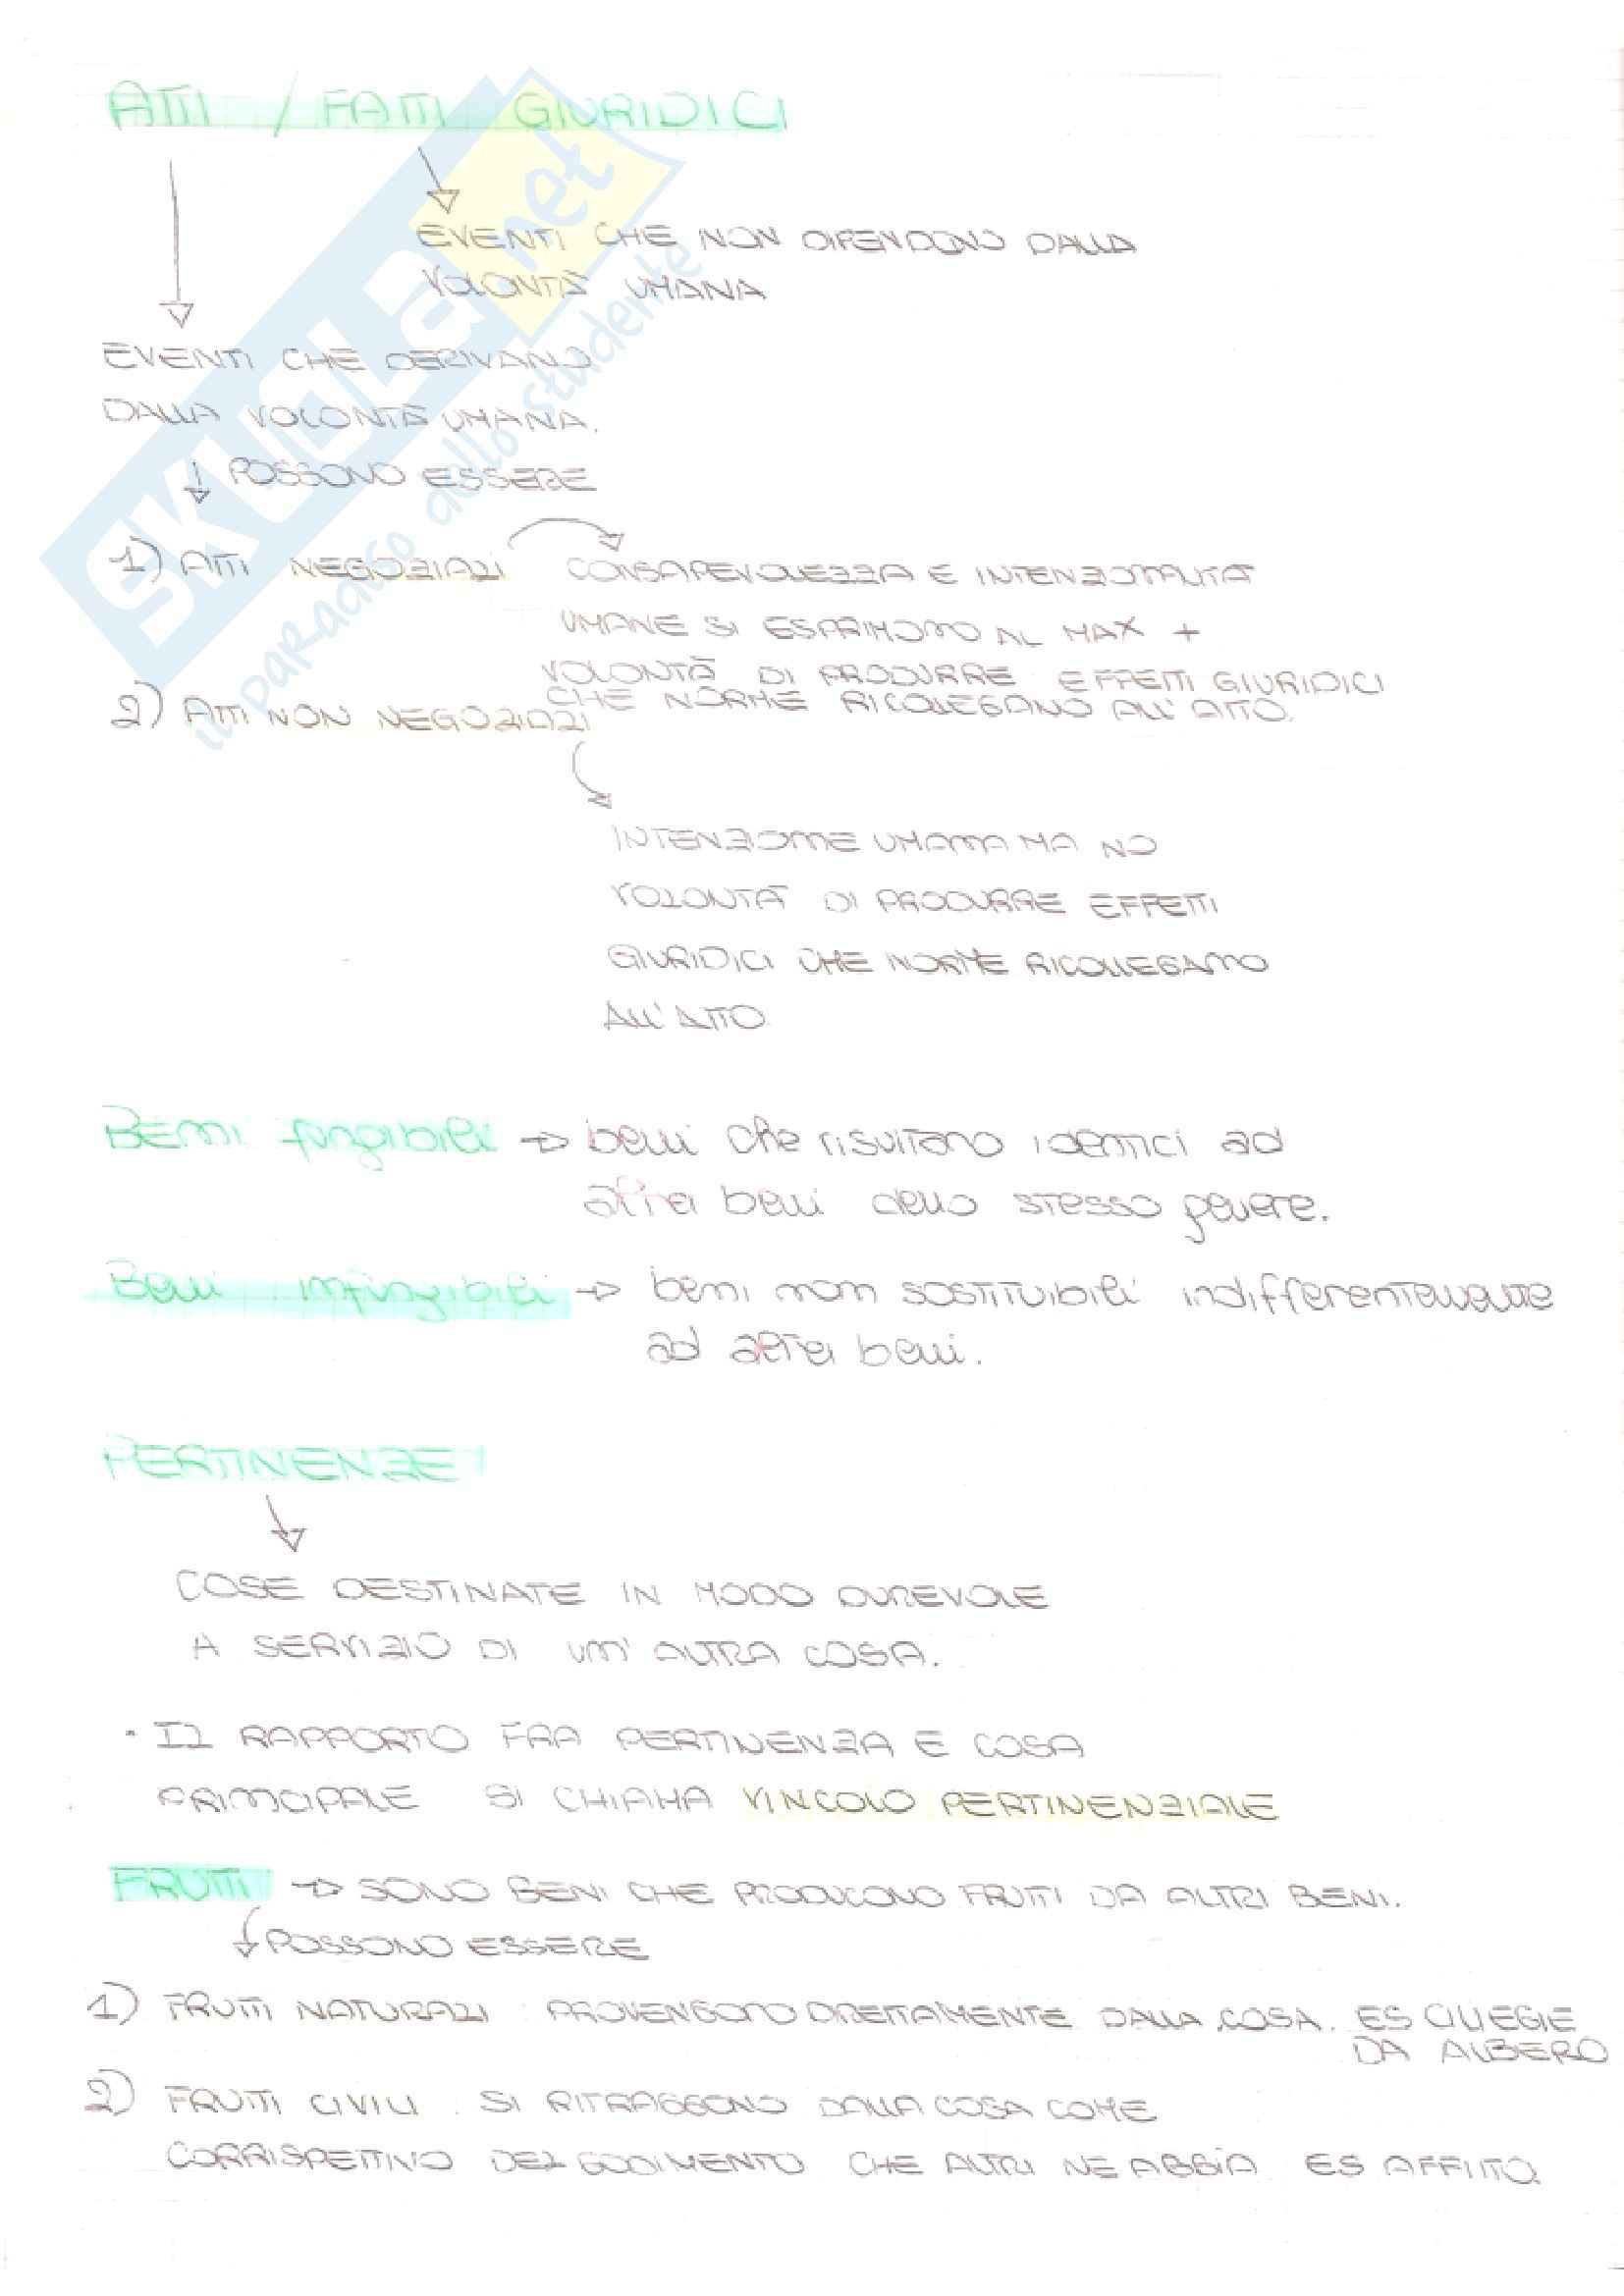 ATTI / FATTI GIURIDICI
EVENTI CHE NON DIPENDONO DALLA
VOLONTÀ UMANA
EVENTI CHE DERIVANO
DALLA VOLONTÀ UMANA.
POSSONO ESSERE
1) ATTI NEGOZIALI
CONSAPEVOLEZZA E INTENZIONALITÀ
UMANE SI ESPRIMONO AL MAX +
VOLONTÀ DI PRODURRE EFFETTI GIURIDICI
CHE NORME RICOLLEGANO ALL'ATTO.
2) ATTI NON NEGOZIALI
INTENZIONE UMANA MA NO
VOLONTÀ DI PRODURRE EFFETTI
GIURIDICI CHE NORME RICOLLEGANO
ALL'ATTO
BENI fungibili → beni che risultano identici ad
altri beni dello stesso genere.
Beni infungibili → beni non sostituibili indifferentemente
ad altri beni.
PERTINENZE
COSE DESTINATE IN MODO DUREVOLE
A SERVIZIO DI UN'ALTRA COSA.
• IL RAPPORTO FRA PERTINENZA E COSA
PRINCIPALE SI CHIAMA VINCOLO PERTINENZIALE
FRUTTI → SONO BENI CHE PRODUCONO FRUTTI DA ALTRI BENI.
POSSONO ESSERE
1) FRUTTI NATURALI : PROVENGONO DIRETTAMENTE DALLA COSA. ES CILIEGIE
DA ALBERO
2) FRUTTI CIVILI : SI RITRAGGONO DALLA COSA COME
CORRISPETTIVO DEL GODIMENTO CHE ALTRI NE ABBIA ES AFFITTO
SKUOLA.net
il paradiso dello studente